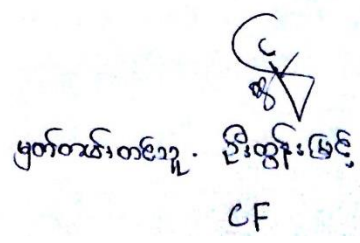 မှတ်တမ်းတင်သူ - ဦးထွန်းမြင့်
CF